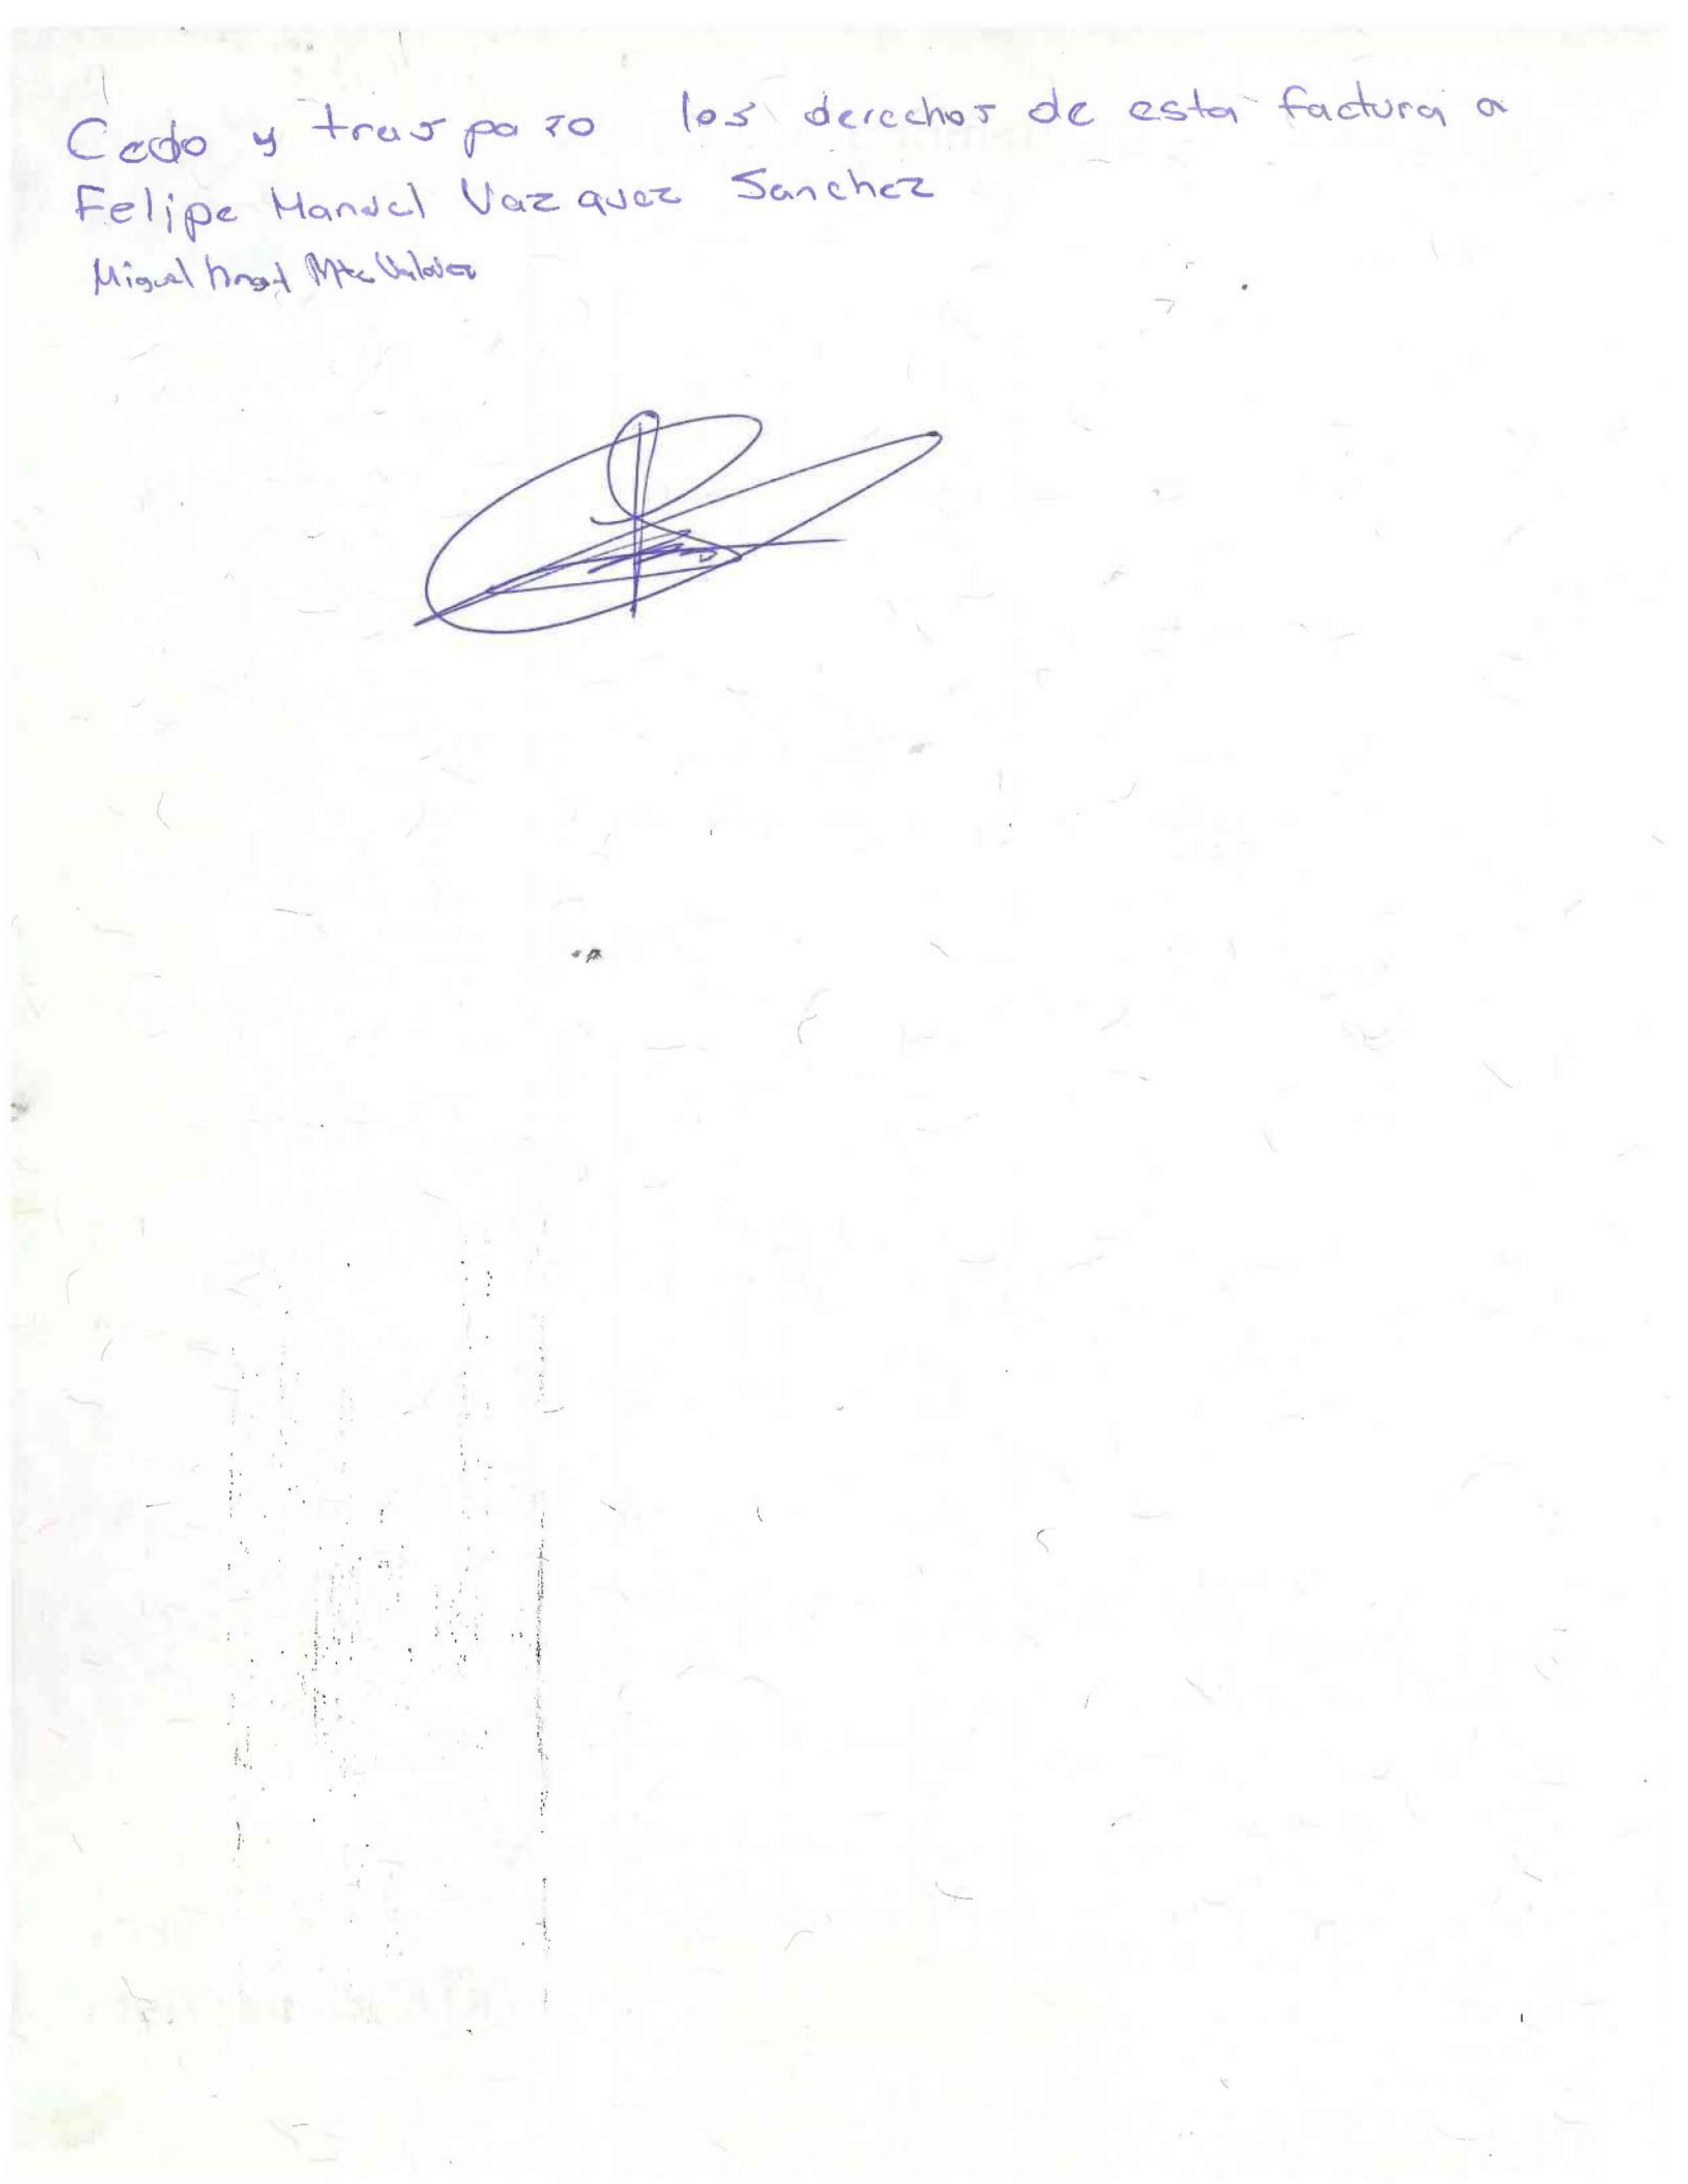 Cedo y traspazo los derechos de esta factura a
Felipe Manuel Vazquez Sanchez
Miguel Angel